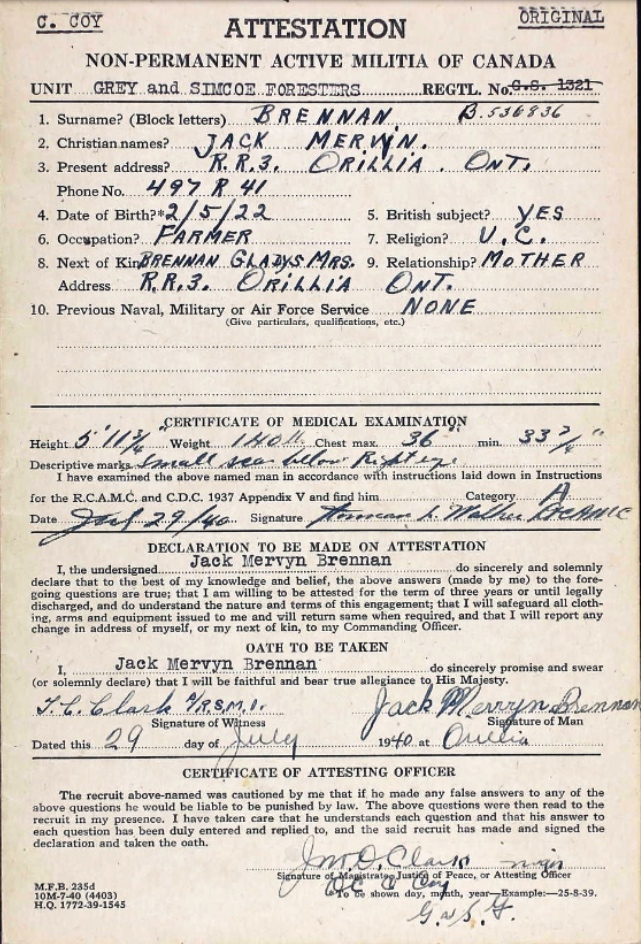 C. COY
ORIGINAL
ATTESTATION
NON-PERMANENT ACTIVE MILITIA OF CANADA
UNIT GREY and SIMCOE FORESTERS REGTL. No. G.S. 1321
1. Surname? (Block letters) BRENNAN B.536836
2. Christian names? JACK MERVIN.
3. Present address? R.R.3. ORILLIA. ONT.
Phone No. 497 R 41
4. Date of Birth?* 2/5/22 5. British subject? YES
6. Occupation? FARMER 7. Religion? U.C.
8. Next of Kin BRENNAN GLADYS MRS. 9. Relationship? MOTHER
Address R.R.3. ORILLIA ONT.
10. Previous Naval, Military or Air Force Service NONE
(Give particulars, qualifications, etc.)
CERTIFICATE OF MEDICAL EXAMINATION
Height 5' 11 3/4 Weight 140 Chest max. 36" min. 33 3/4"
Descriptive marks Small scar below Right eye
I have examined the above named man in accordance with instructions laid down in Instructions
for the R.C.A.M.C. and C.D.C. 1937 Appendix V and find him Category A
Date 29/40 Signature RCAMC
DECLARATION TO BE MADE ON ATTESTATION
I, the undersigned Jack Mervyn Brennan do sincerely and solemnly
declare that to the best of my knowledge and belief, the above answers (made by me) to the fore-
going questions are true; that I am willing to be attested for the term of three years or until legally
discharged, and do understand the nature and terms of this engagement; that I will safeguard all cloth-
ing, arms and equipment issued to me and will return same when required, and that I will report any
change in address of myself, or my next of kin, to my Commanding Officer.
OATH TO BE TAKEN
I, Jack Mervyn Brennan do sincerely promise and swear
(or solemnly declare) that I will be faithful and bear true allegiance to His Majesty.
T.C. Clark A/R.S.M.1. Jack Mervyn Brennan
Signature of Witness Signature of Man
Dated this 29 day of July 1940 at Orillia
CERTIFICATE OF ATTESTING OFFICER
The recruit above-named was cautioned by me that if he made any false answers to any of the
above questions he would be liable to be punished by law. The above questions were then read to the
recruit in my presence. I have taken care that he understands each question and that his answer to
each question has been duly entered and replied to, and the said recruit has made and signed the
declaration and taken the oath.
Clark major
Signature of Magistrate, Justice of Peace, or Attesting Officer
OC C Coy
M.F.B. 235d
*To be shown day, month, year—Example:—25-8-39.
10M-7-40 (4403)
H.Q. 1772-39-1545
G & S. F.